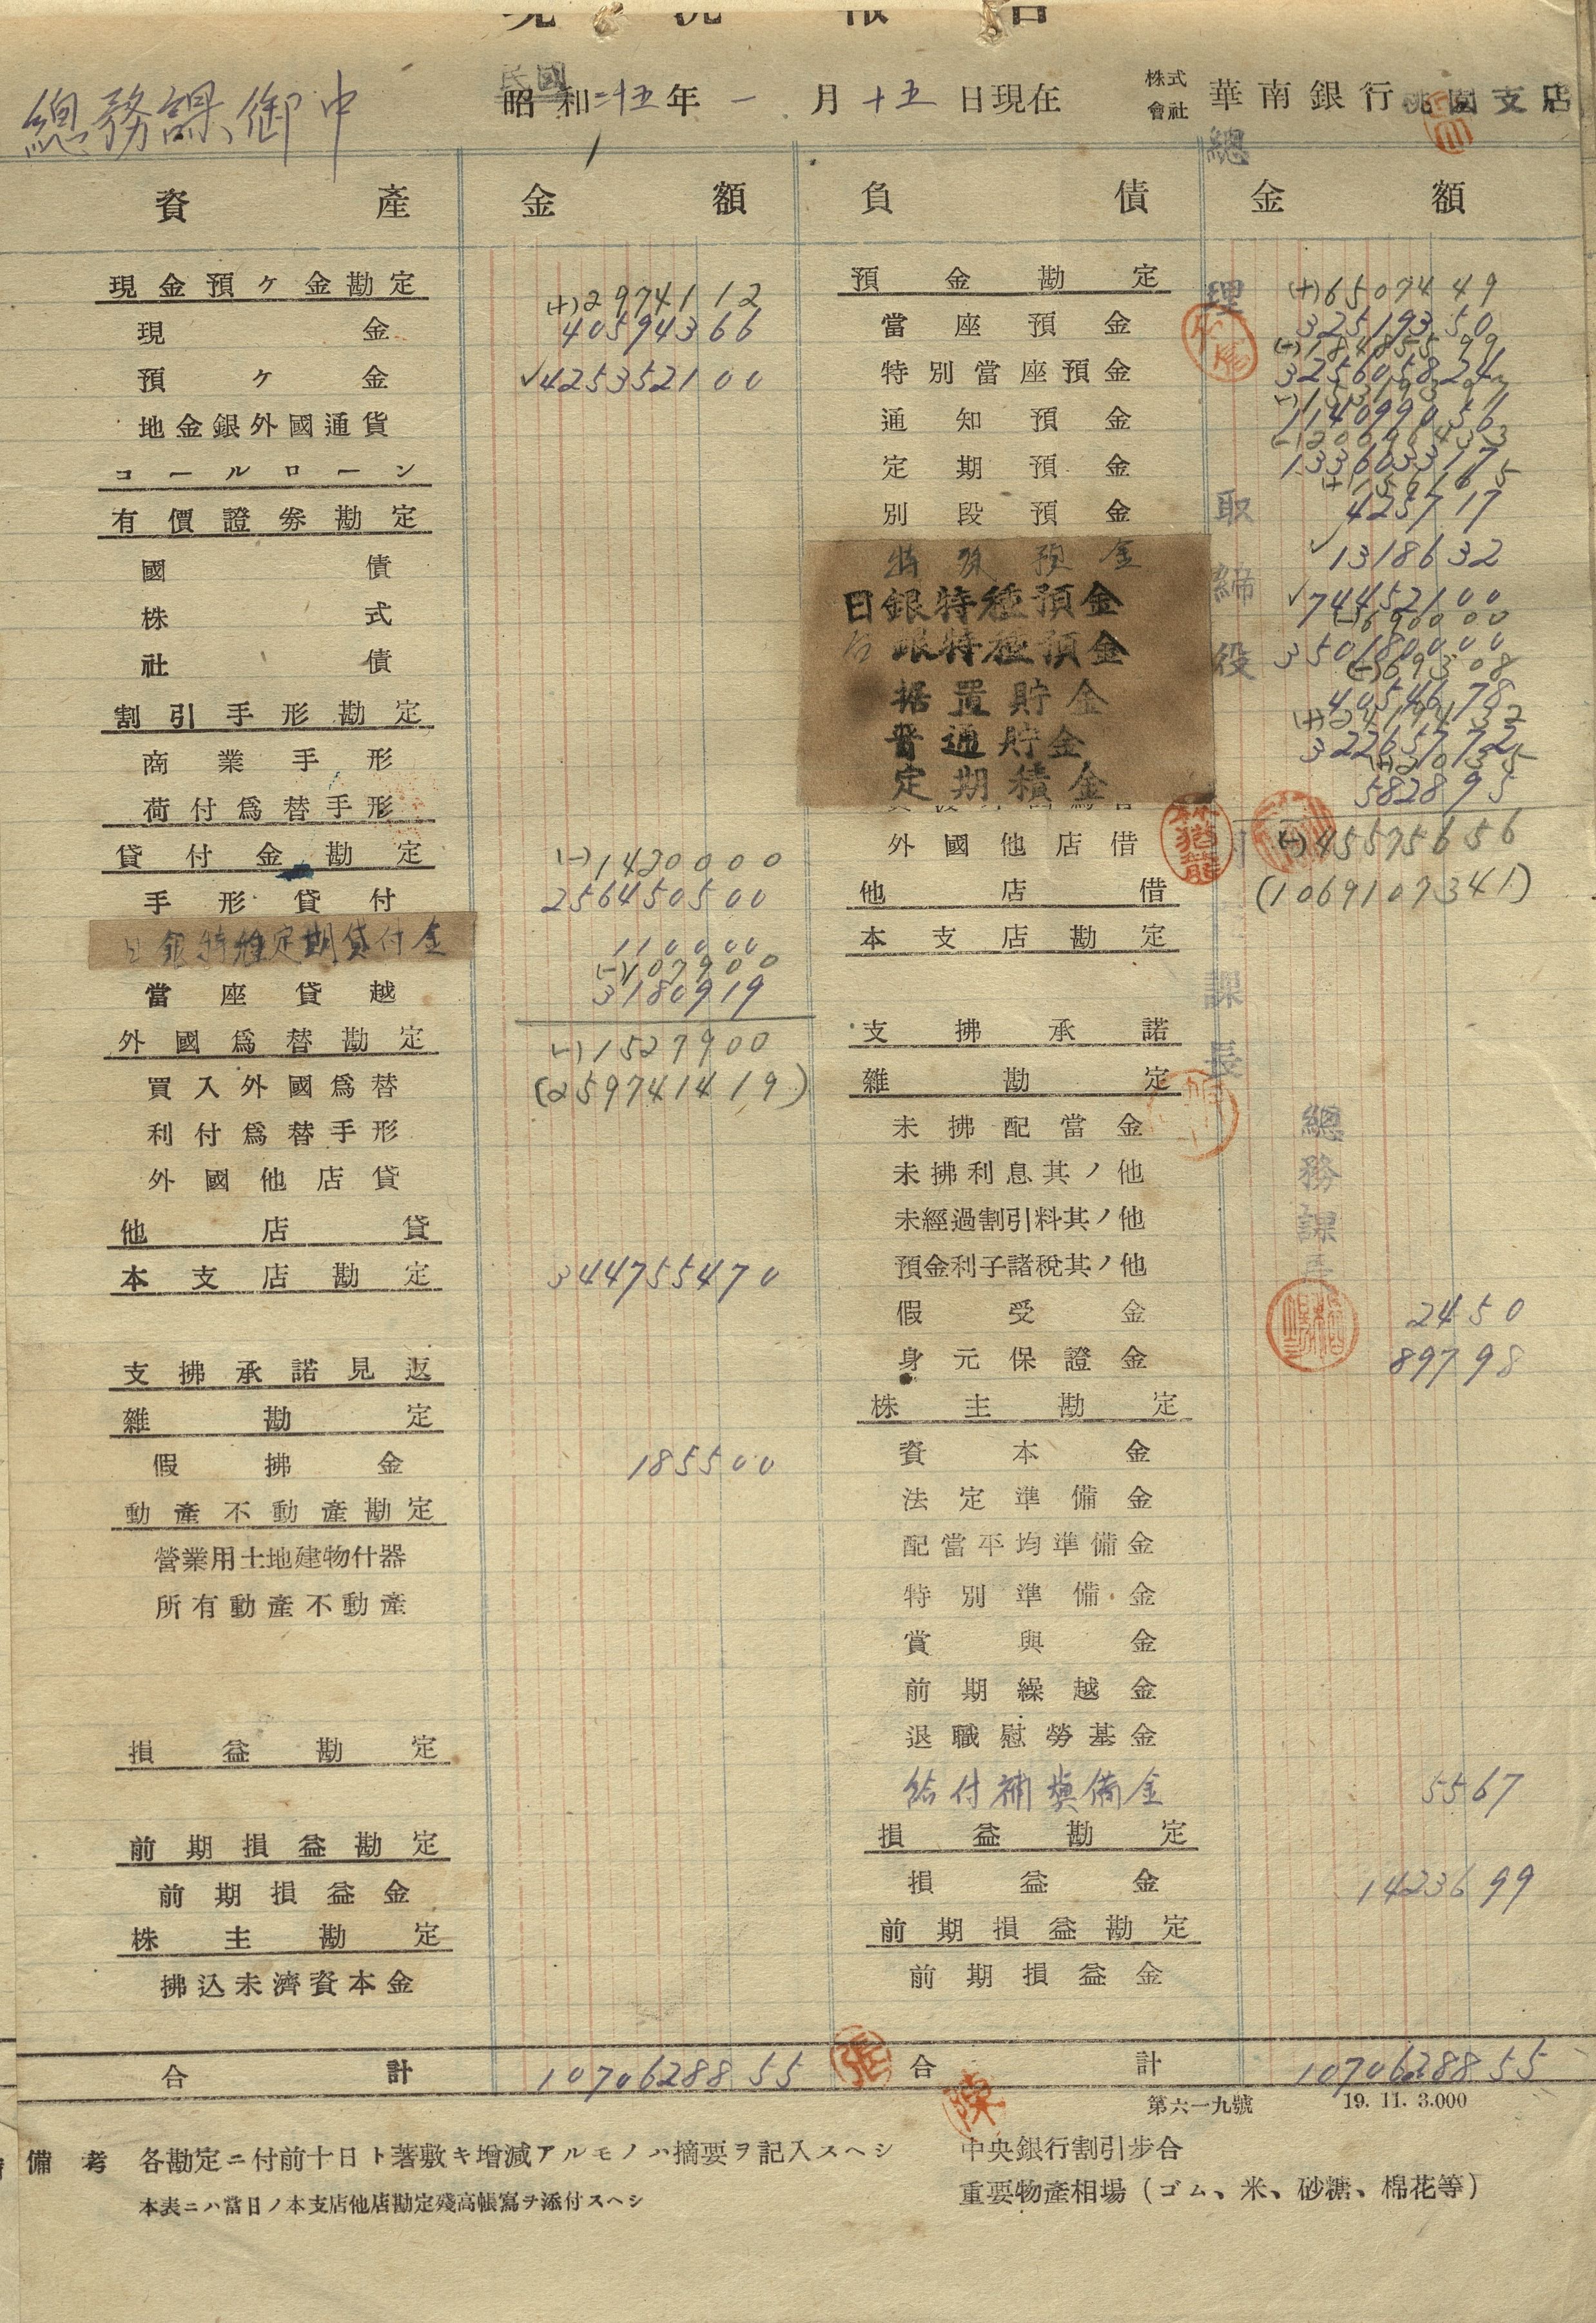 現況報告
總務課御中
民國
昭和二十五年一月十五日現在
株式會社 華南銀行桃園支店
資產 金額 負債 金額
現金預ケ金勘定 (+)29741 12
現金 405943 66
預ケ金 ✓4253521 00
地金銀外國通貨
コールローン
有價證券勘定
國債
株式
社債
割引手形勘定
商業手形
荷付爲替手形
貸付金勘定 (-)14200 00
手形貸付 2564505 00
日銀特種定期貸付金 1100 00
(-)1079 00
當座貸越 31809 19
外國爲替勘定 (-)15279 00
買入外國爲替 (2597414 19)
利付爲替手形
外國他店貸
他店貸
本支店勘定 3447554 70
支拂承諾見返
雜勘定
假拂金 1855 00
動產不動產勘定
營業用土地建物什器
所有動產不動產
損益勘定
前期損益勘定
前期損益金
株主勘定
拂込未濟資本金
合計 10706288 55
預金勘定 (+)65074 49
當座預金 325193 50
(-)184855 99
特別當座預金 3256058 24
通知預金 1140990 56
(-)206964 33
定期預金 1336033 17
別段預金 4257 17
特殊預金 ✓13186 32
日銀特種預金 ✓744521 00
(-)6900 00
台銀特種預金 3501800 00
(-)693 08
据置貯金 40546 78
(+)24194 32
普通貯金 322657 72
(+)210 35
定期積金 5828 95
外國他店借 (-)455756 56
他店借 (10691073 41)
本支店勘定
支拂承諾
雜勘定
未拂配當金
未拂利息其ノ他
未經過割引料其ノ他
預金利子諸稅其ノ他
假受金 24 50
身元保證金 897 98
株主勘定
資本金
法定準備金
配當平均準備金
特別準備金
賞與金
前期繰越金
退職慰勞基金
給付補塡備金 55 67
損益勘定
損益金 14236 99
前期損益勘定
前期損益金
合計 10706288 55
總理
取締役
課長
總務課長
林猶龍
張
陳
第六一九號 19. 11. 3.000
備考 各勘定ニ付前十日ト著敷キ增減アルモノハ摘要ヲ記入スヘシ
本表ニハ當日ノ本支店他店勘定殘高帳寫ヲ添付スヘシ
中央銀行割引步合
重要物產相場(ゴム、米、砂糖、棉花等)